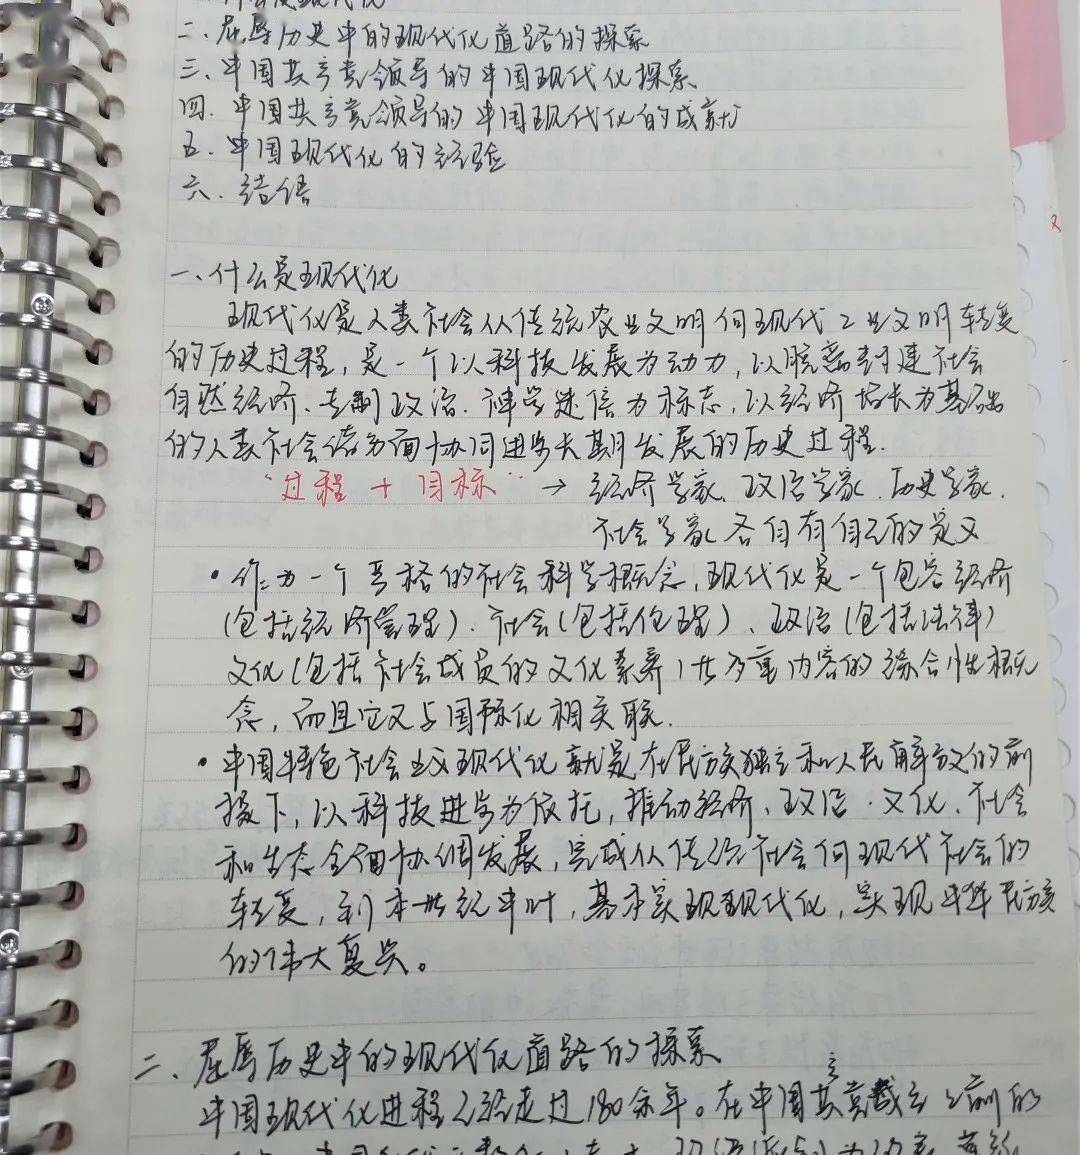 什么是现代化
二、屈辱历史中的现代化道路的探索
三、中国共产党领导的中国现代化探索
四、中国共产党领导的中国现代化的成就
五、中国现代化的经验
六、结语
一、什么是现代化
现代化是人类社会从传统农业文明向现代工业文明转变
的历史过程，是一个以科技发展为动力，以脱离封建社会
自然经济、专制政治、神学迷信为标志，以经济增长为基础
的人类社会诸方面协同进步长期发展的历史过程.
“过程 + 目标” → 经济学家、政治学家、历史学家、
社会学家各自有自己的定义
·作为一个严格的社会科学概念，现代化是一个包容经济
(包括经济管理)、社会(包括伦理)、政治(包括法律)
文化(包括社会成员的文化素养)也多重内容的综合性概
念，而且它又与国际化相关联.
·中国特色社会主义现代化就是在民族独立和人民解放的前
提下，以科技进步为依托，推动经济、政治、文化、社会
和生态全面协调发展，完成从传统社会向现代社会的
转变，到本世纪中叶，基本实现现代化，实现中华民族
的伟大复兴。
二、屈辱历史中的现代化道路的探索
中国现代化进程已经走过180余年。在中国共产党成立之前的